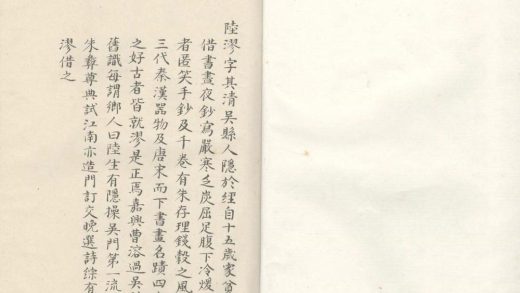 陸漻字其清吳縣人隱於經自十五歲家
借書晝夜鈔寫嚴寒乏炭屈足腹下冷煖
者匿笑手鈔及千卷有朱存理錢穀之風
三代秦漢器物及唐宋而下書畫名蹟四
之好古者皆就漻是正焉嘉興曹溶過吳
舊識每謂鄉人曰陸生有隱操吳門第一流
朱彝尊典試江南亦造門訂交晚選詩綜有
漻借之